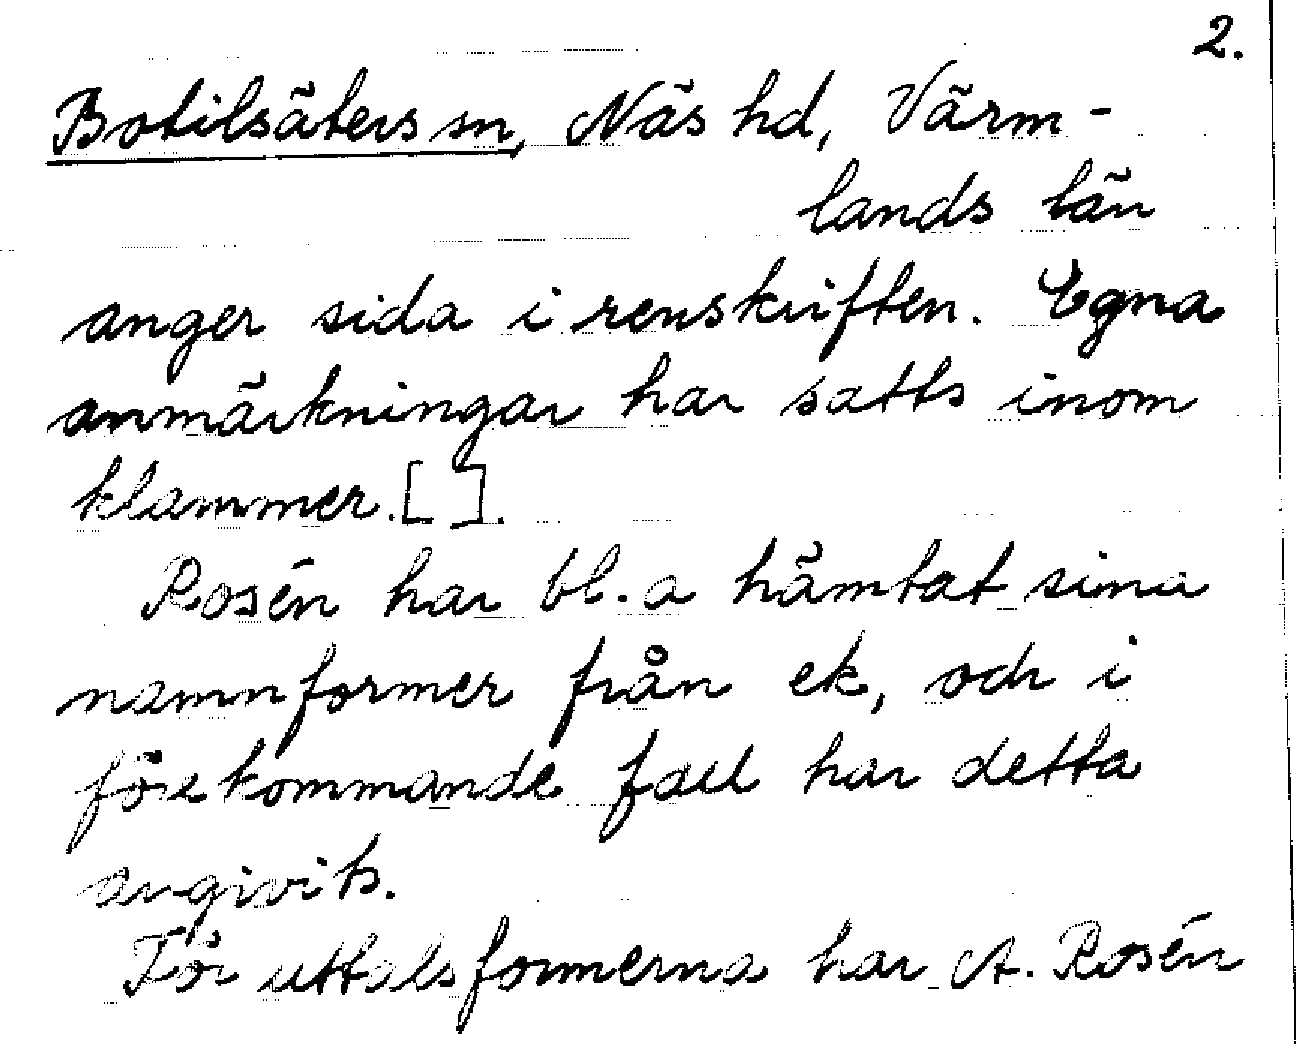 2.
Botilsäters sn, Näs hd, Värm-
lands län
anger sida i renskriften. Egna
anmärkningar har satts inom
klammer. [ ].
Rosén har bl.a hämtat sina
namnformer från ek, och i
förekommande fall har detta
angivits.
För uttalsformerna har A. Rosén